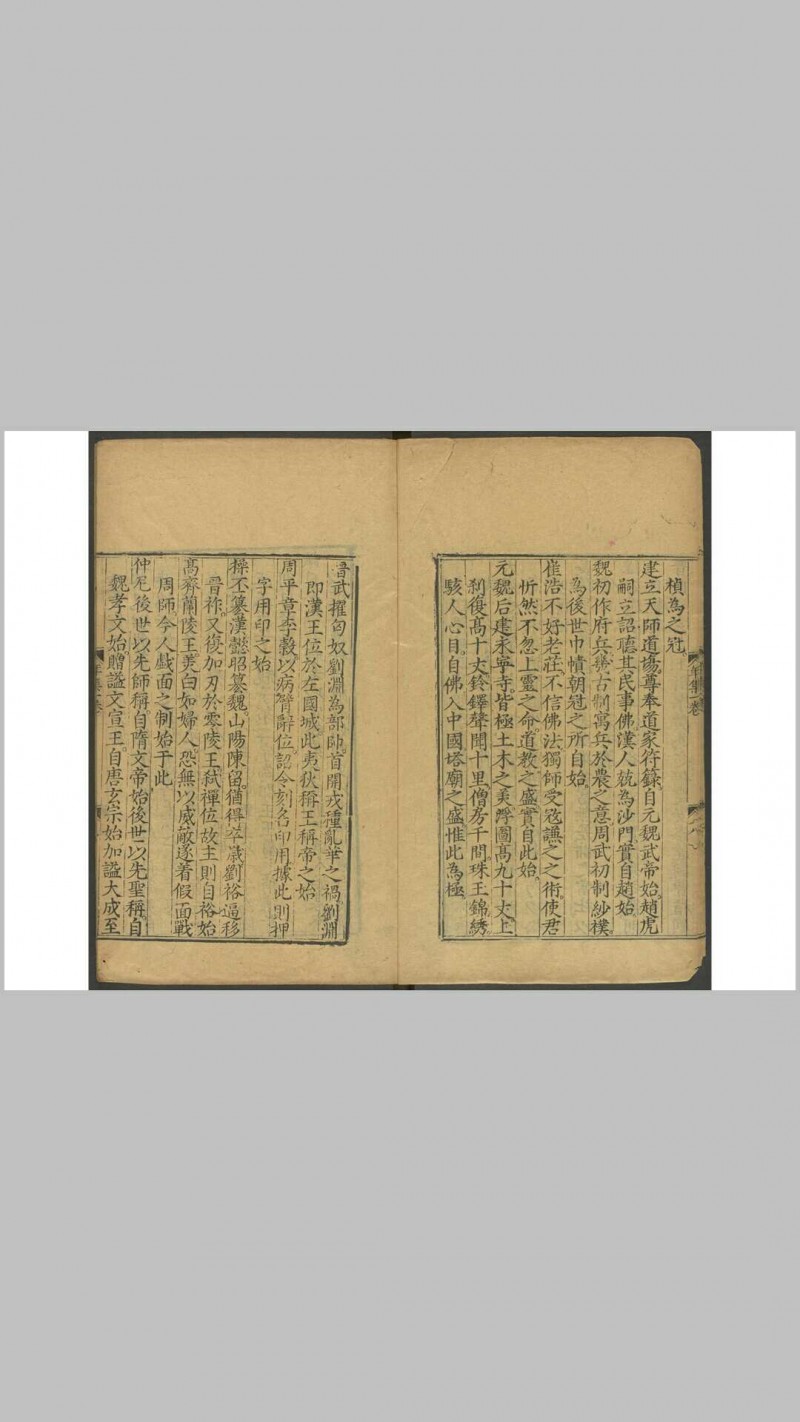 楨為之冠
建立天師道場尊奉道家符籙自元魏武帝始趙虎
嗣立詔聽其民事佛漢人兢為沙門實自趙始
魏初作府兵襲古制寓兵於農之意周武初制紗樸
為後世巾幘朝冠之所自始
崔浩不好老莊不信佛法獨師受寇謙之之術使君
忻然不忽上靈之命道教之盛實自此始
元魏后建永寧寺皆極土木之美浮圖高九十丈上
刹復高十丈鈴鐸聲聞十里僧房千間珠玉錦綉
駭人心目自佛入中國塔廟之盛惟此為極
晋武擢匈奴劉淵為部帥首開戎種亂華之禍劉淵
即漢王位於左國城此夷狄稱王稱帝之始
周平章李穀以病臂辭位詔令刻名印用據此則押
字用印之始
操丕纂漢懿昭纂魏山陽陳留猶得卒歲劉裕逼移
晉祚又復加刃於零陵王弒禪位故主則自裕始
高齊蘭陵王美白如婦人恐無以威敵遂著假面戰
周師今人戲面之制始于此
仲尼後世以先師稱自隋文帝始後世以先聖稱自
魏孝文始贈謚文宣王自唐玄宗始加謚大成至